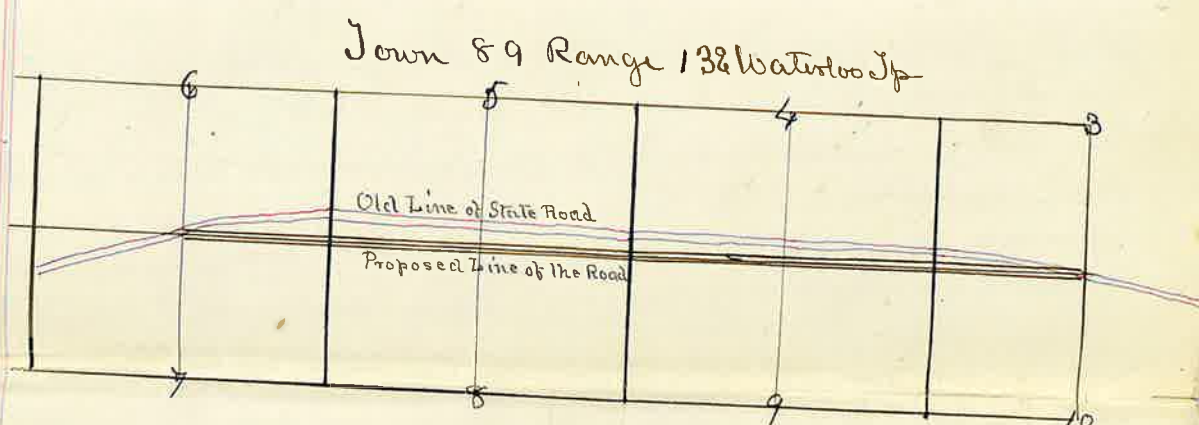 Town 89 Range 13 & Waterloo Tp
6 5 4 3
Old Line of State Road
Proposed Line of the Road
7 8 9 10